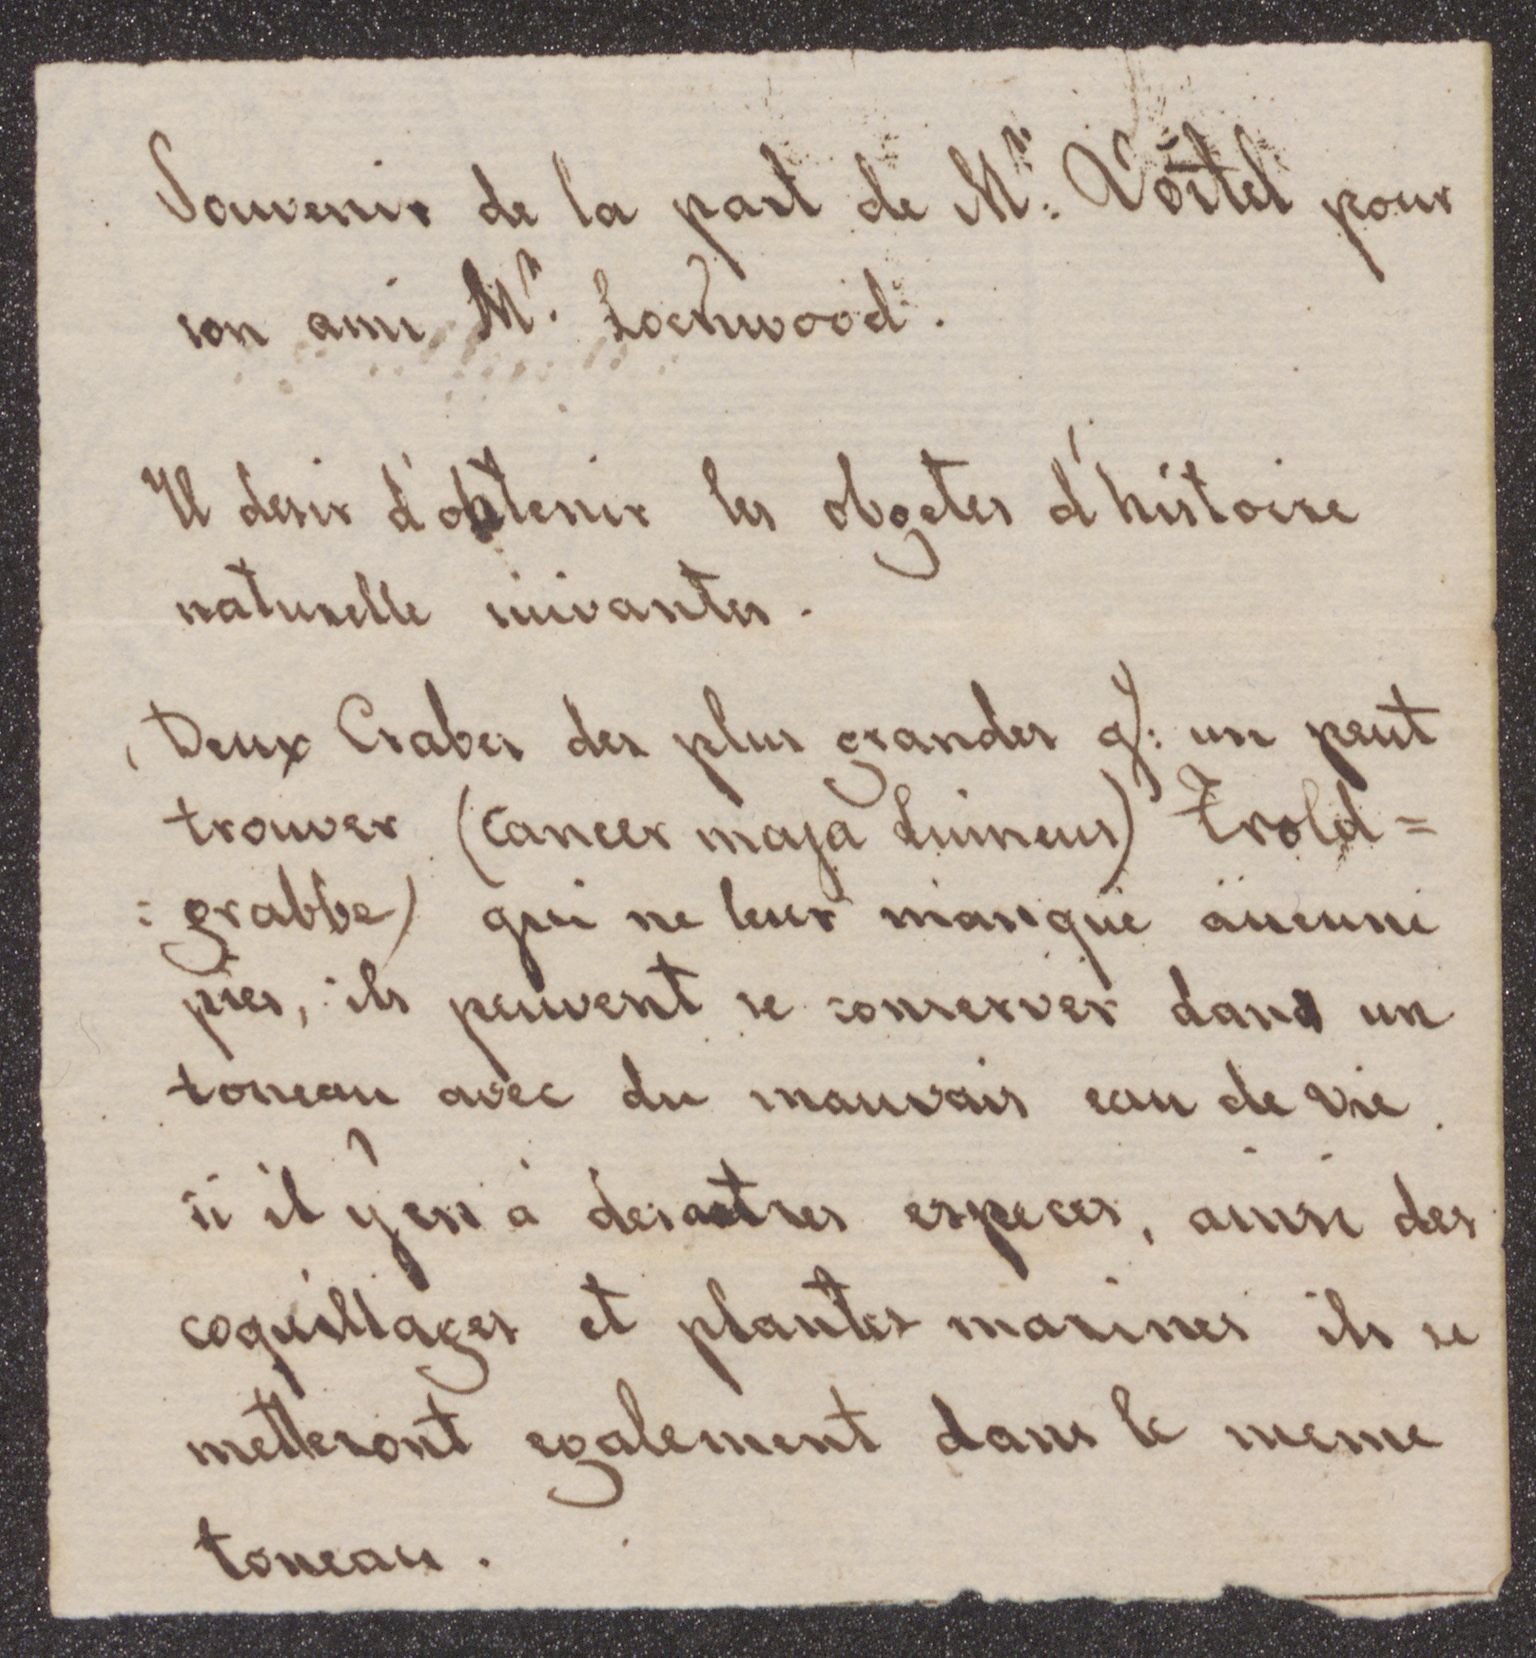 Souvenir de la part de Mr: Voitel pour
son ami Mr. Lochwood.
Il desir d'obtenir les obgetes d'histoire
naturelle suivantes.
Deux Crabes des plus grandes q: un peut
trouver (Cancer maja Linneus) Trold=
:grabbe) qui ne leur manque aucune
pies, ils peuvent se conserver dans un
toneau avec du mauvais eau de vie.
si il y en a des autres especes, ainsi des
coquillages et plantes marines ils se
metteront egalement dans le meme
toneau.